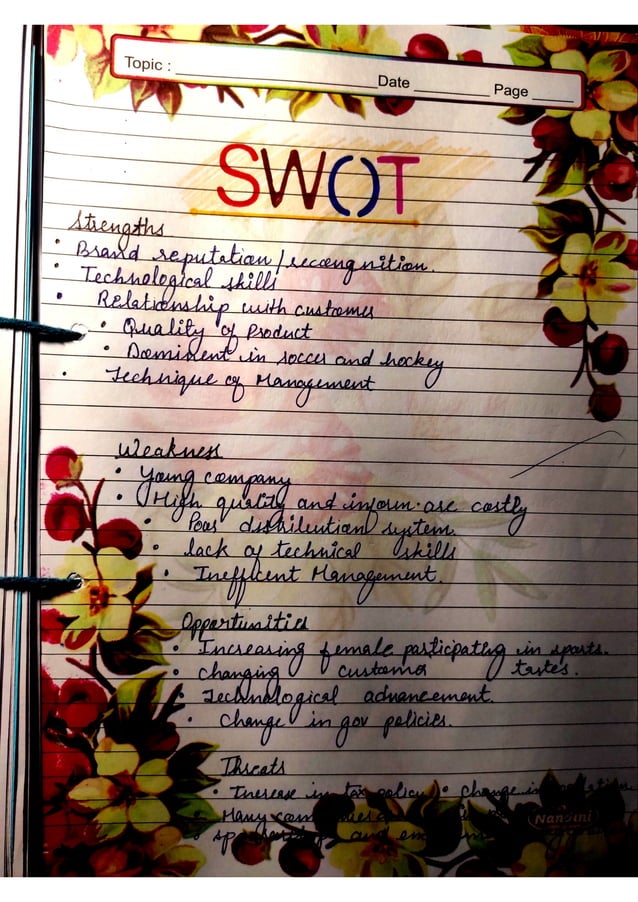 Topic : Date Page
SWOT
Strengths
• Brand reputation / recongnition.
• Technological skills
• Relationship with customer
• Quality of Product
• Dominent in soccer and hockey
• Technique of Management
Weakness
• Young company
• High quality and inform. are costly
• Poor distribution system.
• lack of technical skills
• Inefficent Management.
Opportunities
• Increasing female participating in sports.
• changing customer tastes.
• Technological advancement.
• Change in gov policies.
Threats
• Increase in tax policy • change in
• Many
and
Nandini